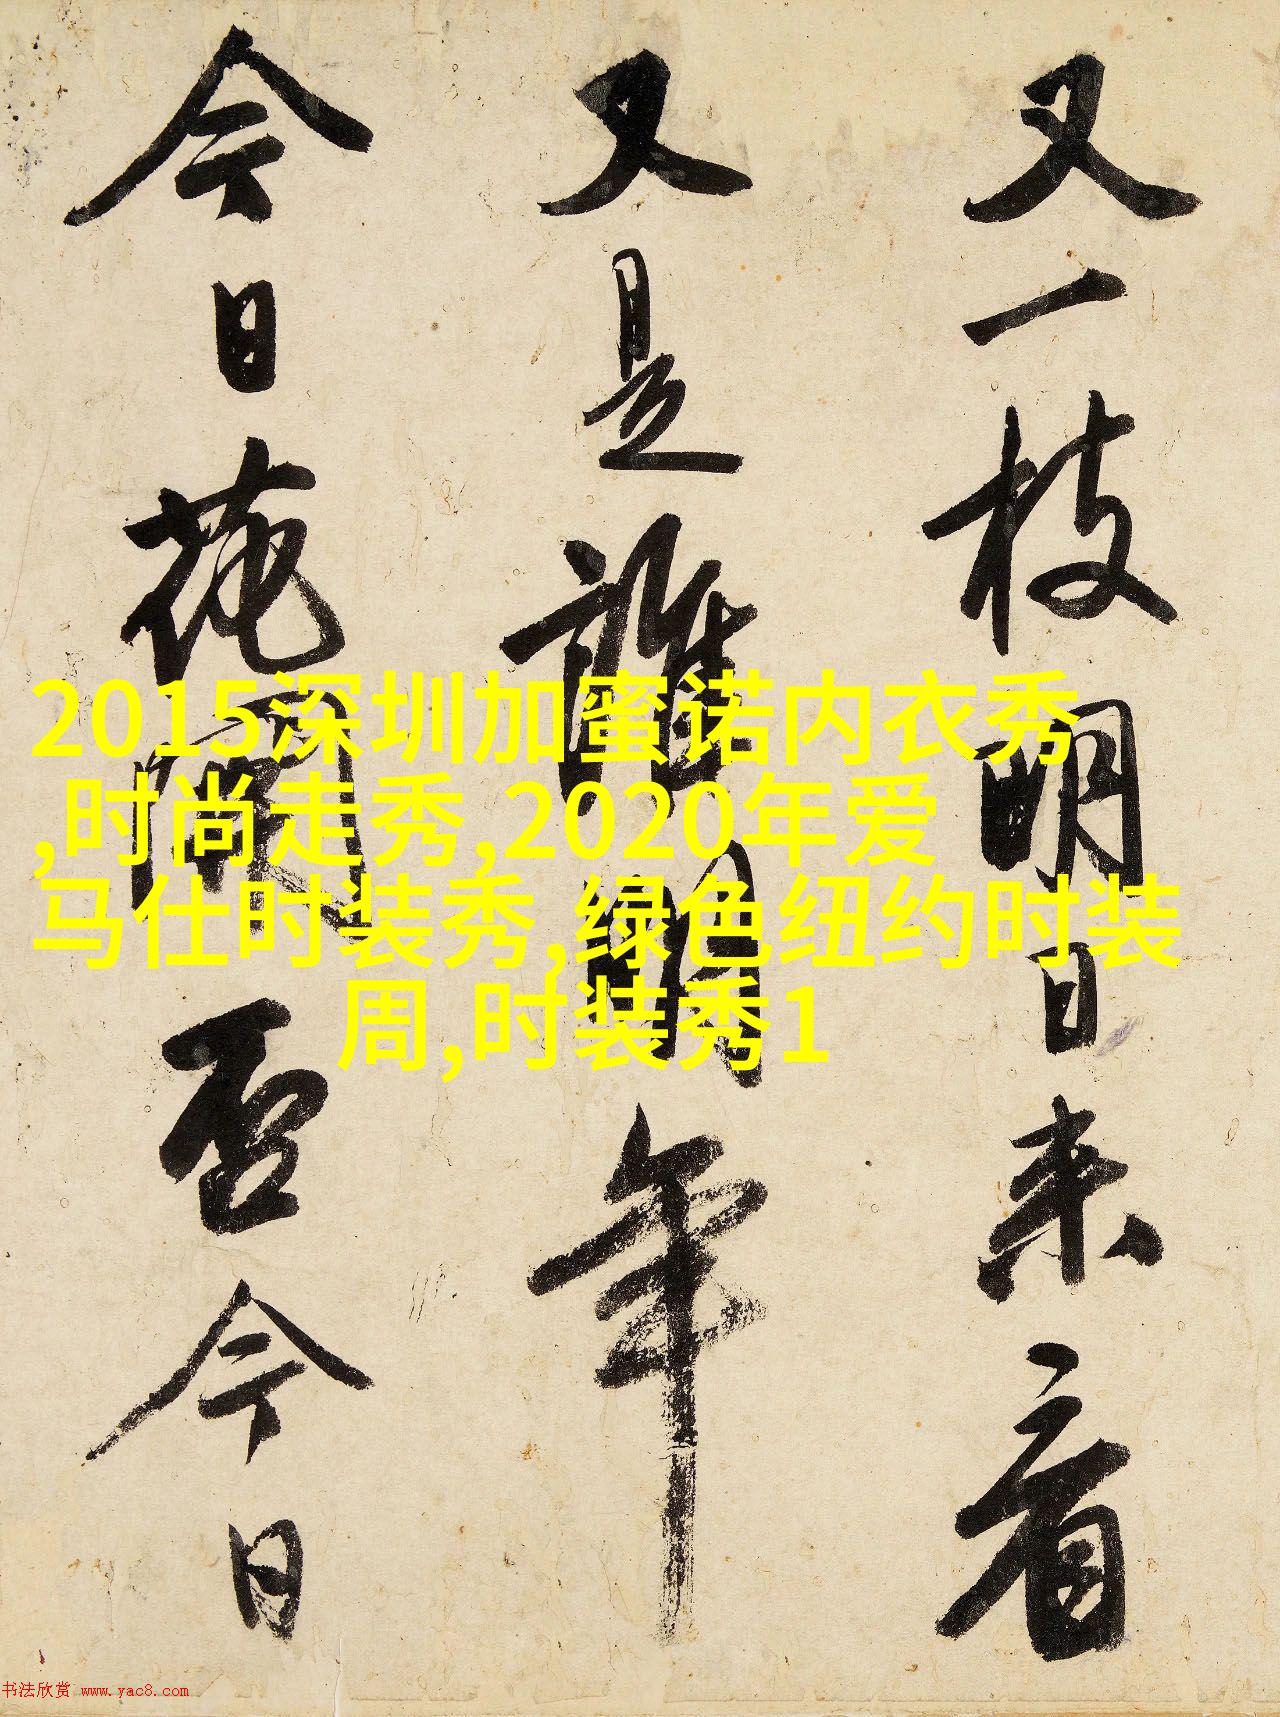 又一枝明日来看
又是誰明年
今日花開否今日
2015深圳加蜜诺内衣秀
,时尚走秀,2020年爱
马仕时装秀,绿色纽约时装
周,时装秀1
书法欣赏 www.yac8.com